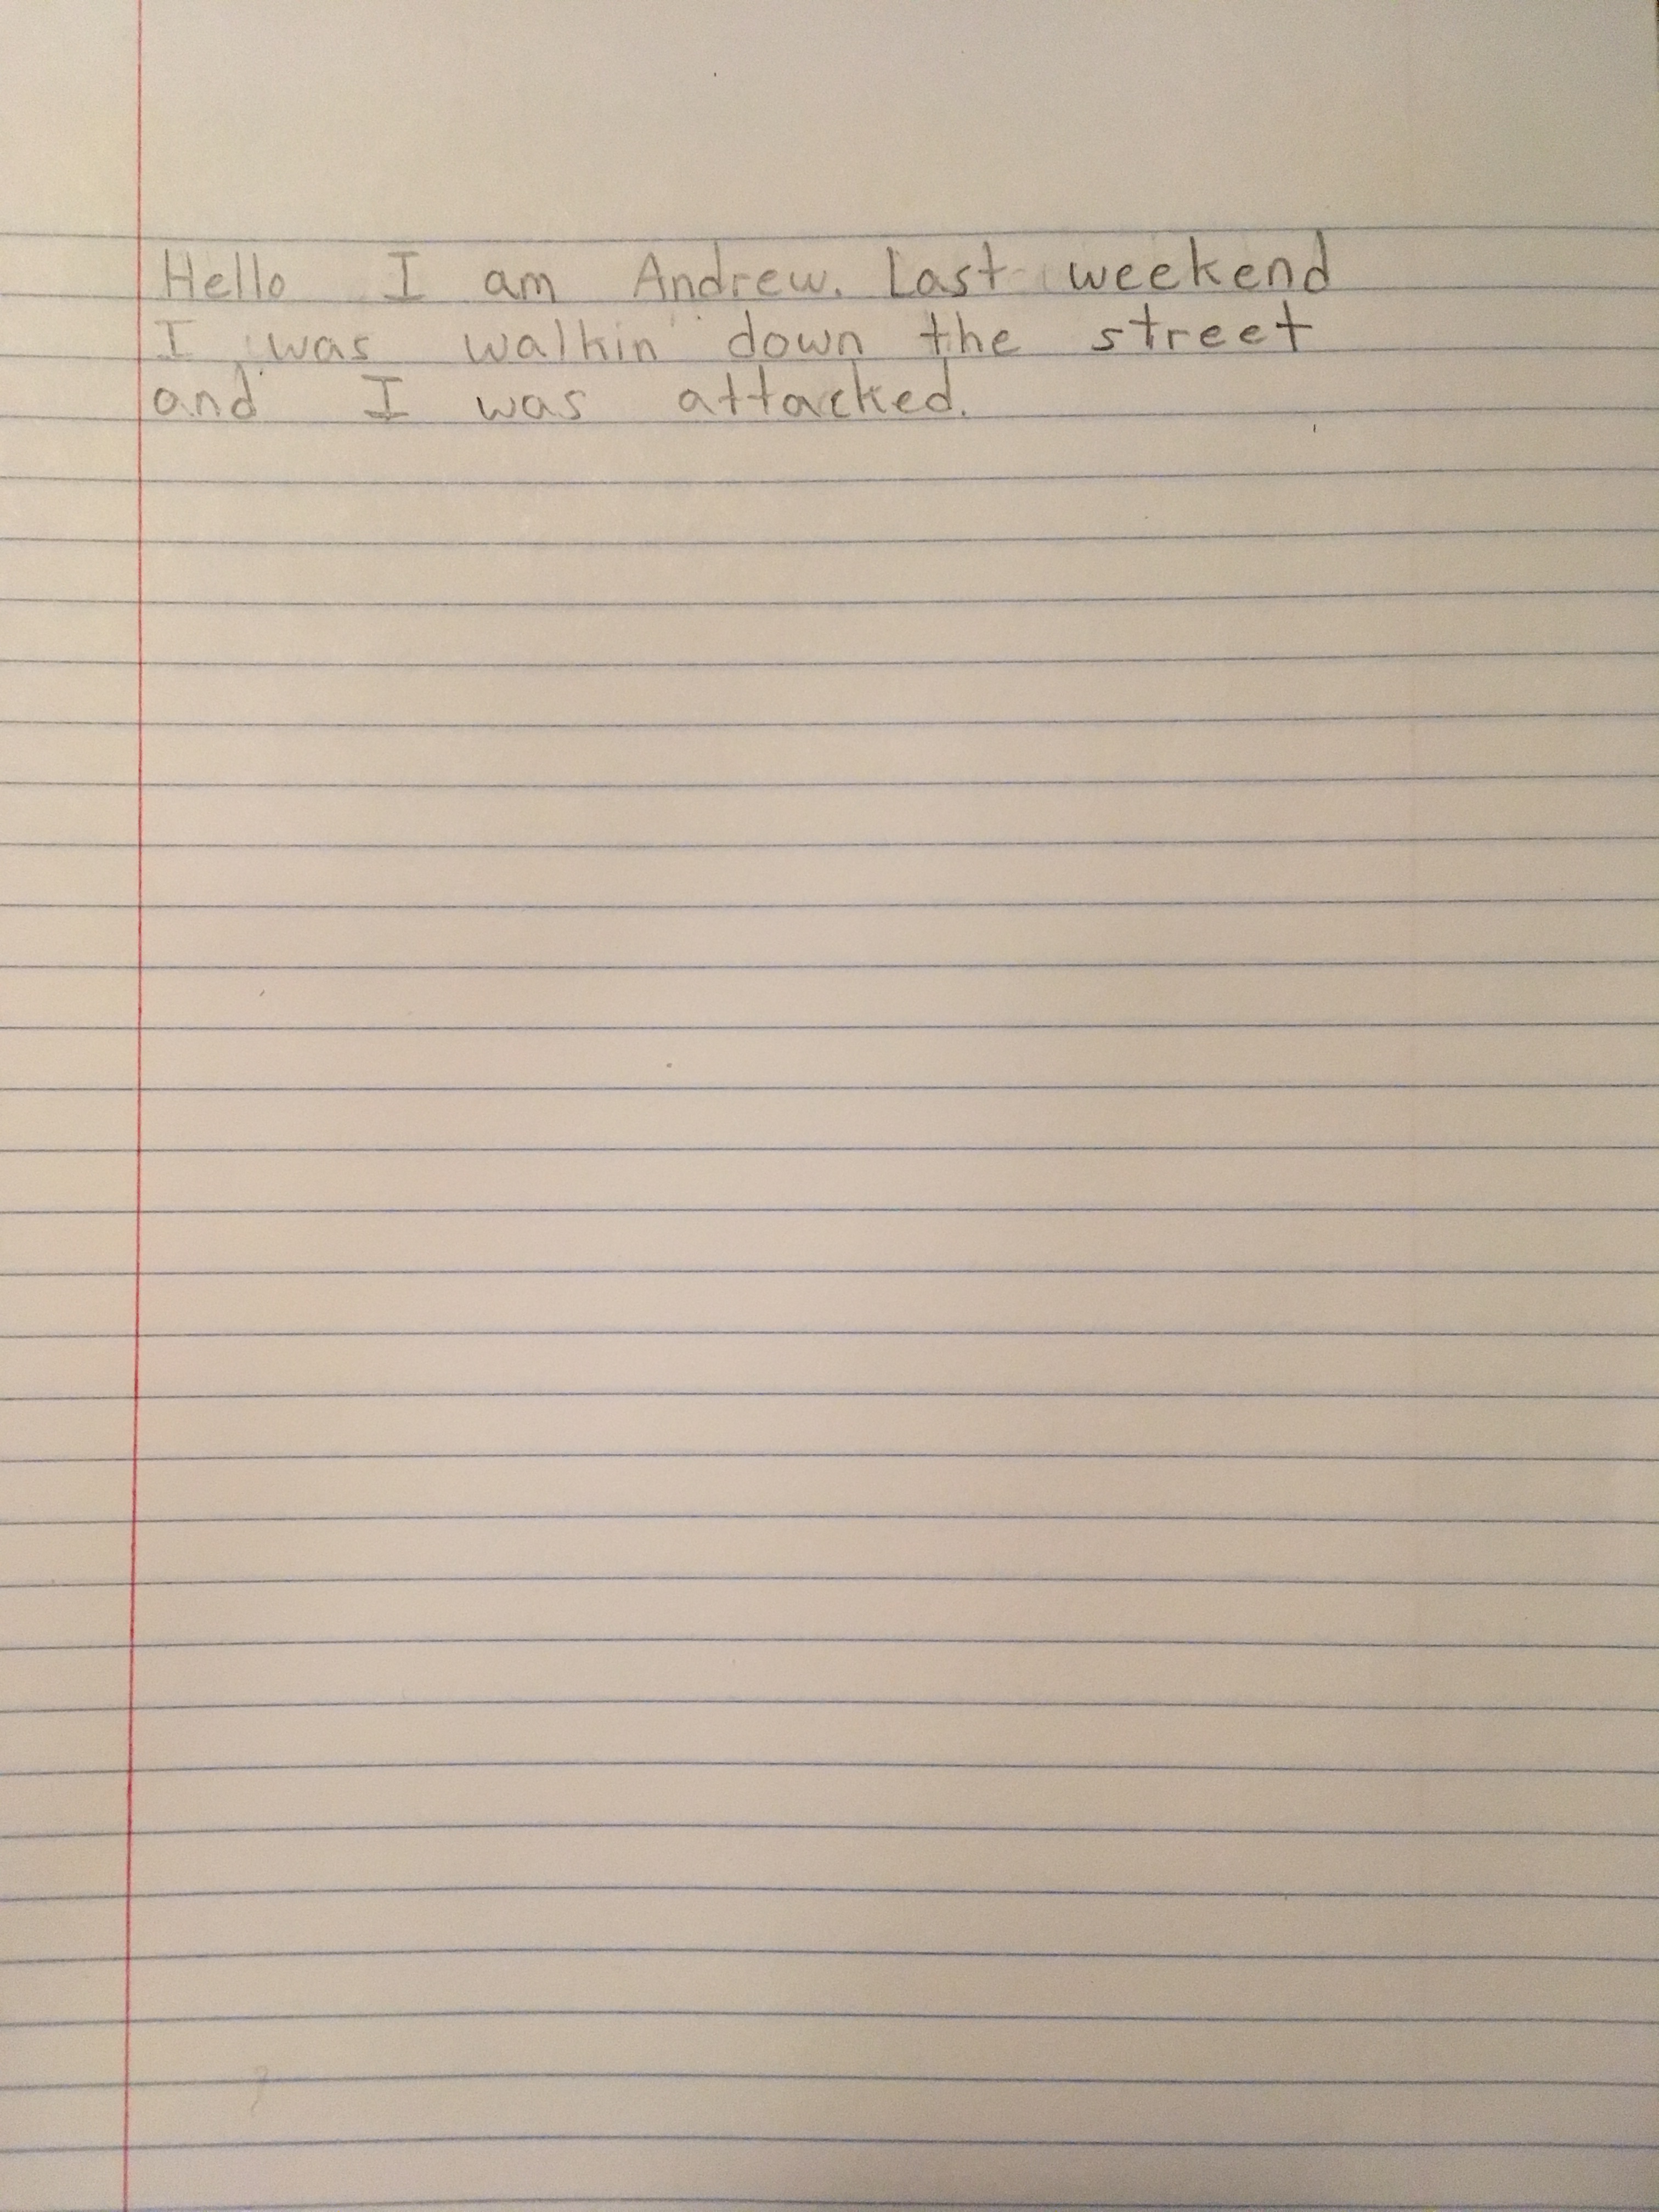 Hello I am Andrew. Last weekend
I was walkin down the street
and I was attacked.